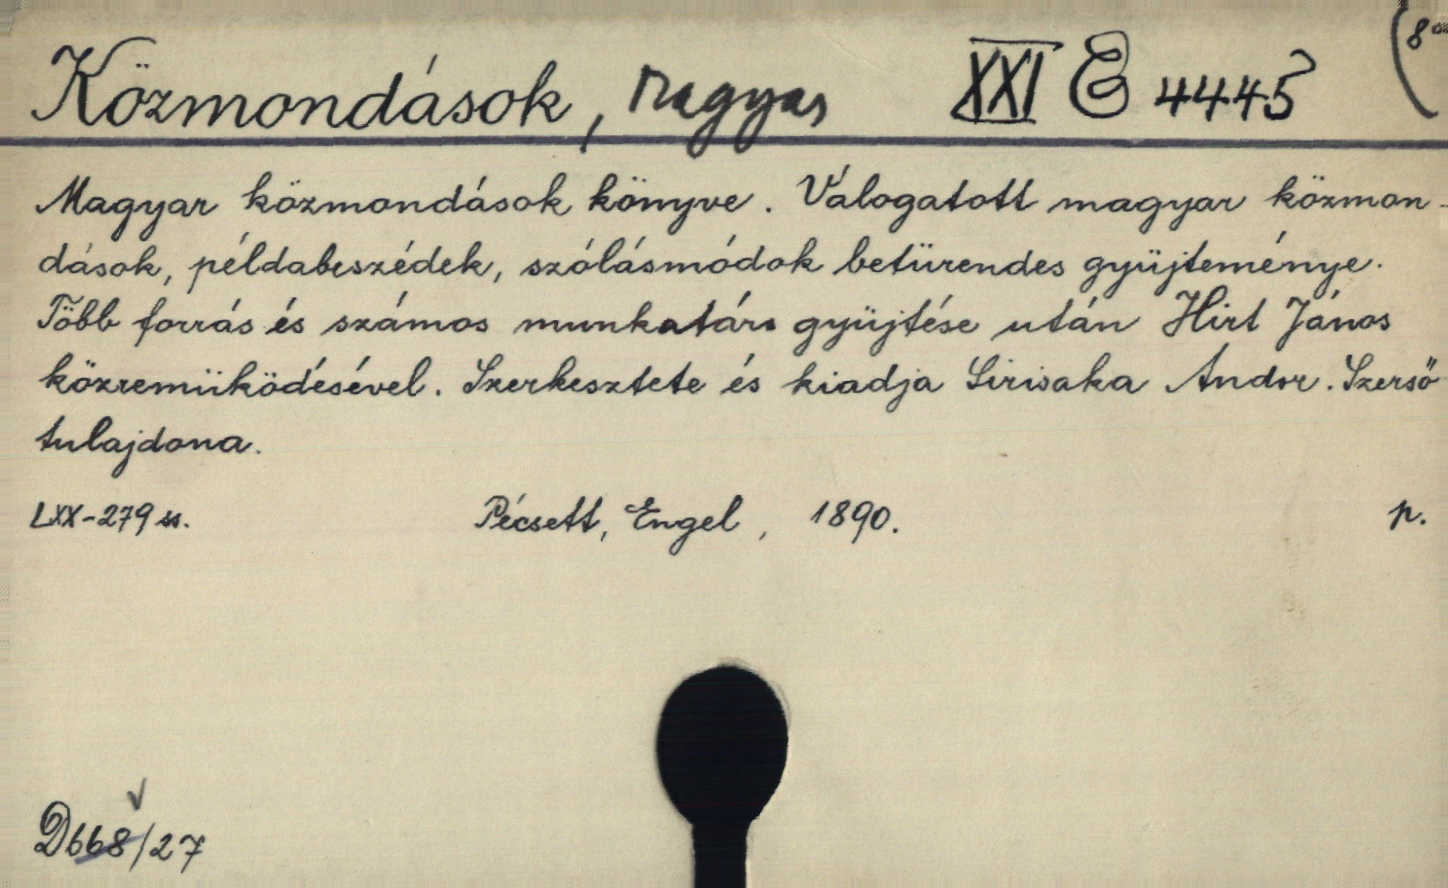 Közmondások, magyar XXI E 4445 (8°
Magyar közmondások könyve. Válogatott magyar közmon-
dások, példabeszédek, szólásmódok betürendes gyüjteménye.
Több forrás és számos munkatárs gyüjtése után Hirt János
közremüködésével. Szerkesztete és kiadja Sirisaka Andor. Szerső
tulajdona.
LXX-279 ss. Pécsett, Engel, 1890. p.
D668/27